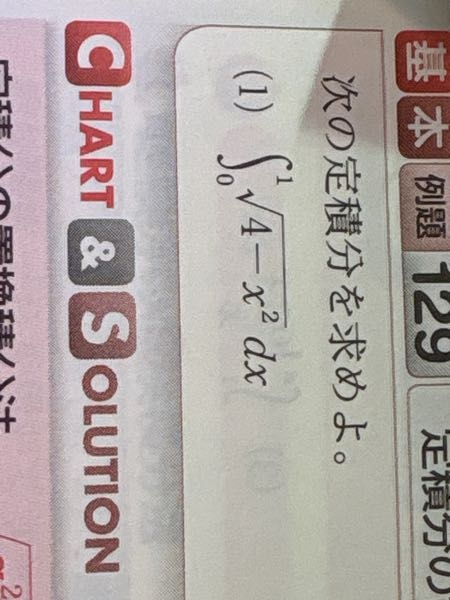 基本 例題 129 定積分の
次の定積分を求めよ。
(1) ∫₀¹√(4−x²) dx
CHART & SOLUTION
定積分の置換積分法